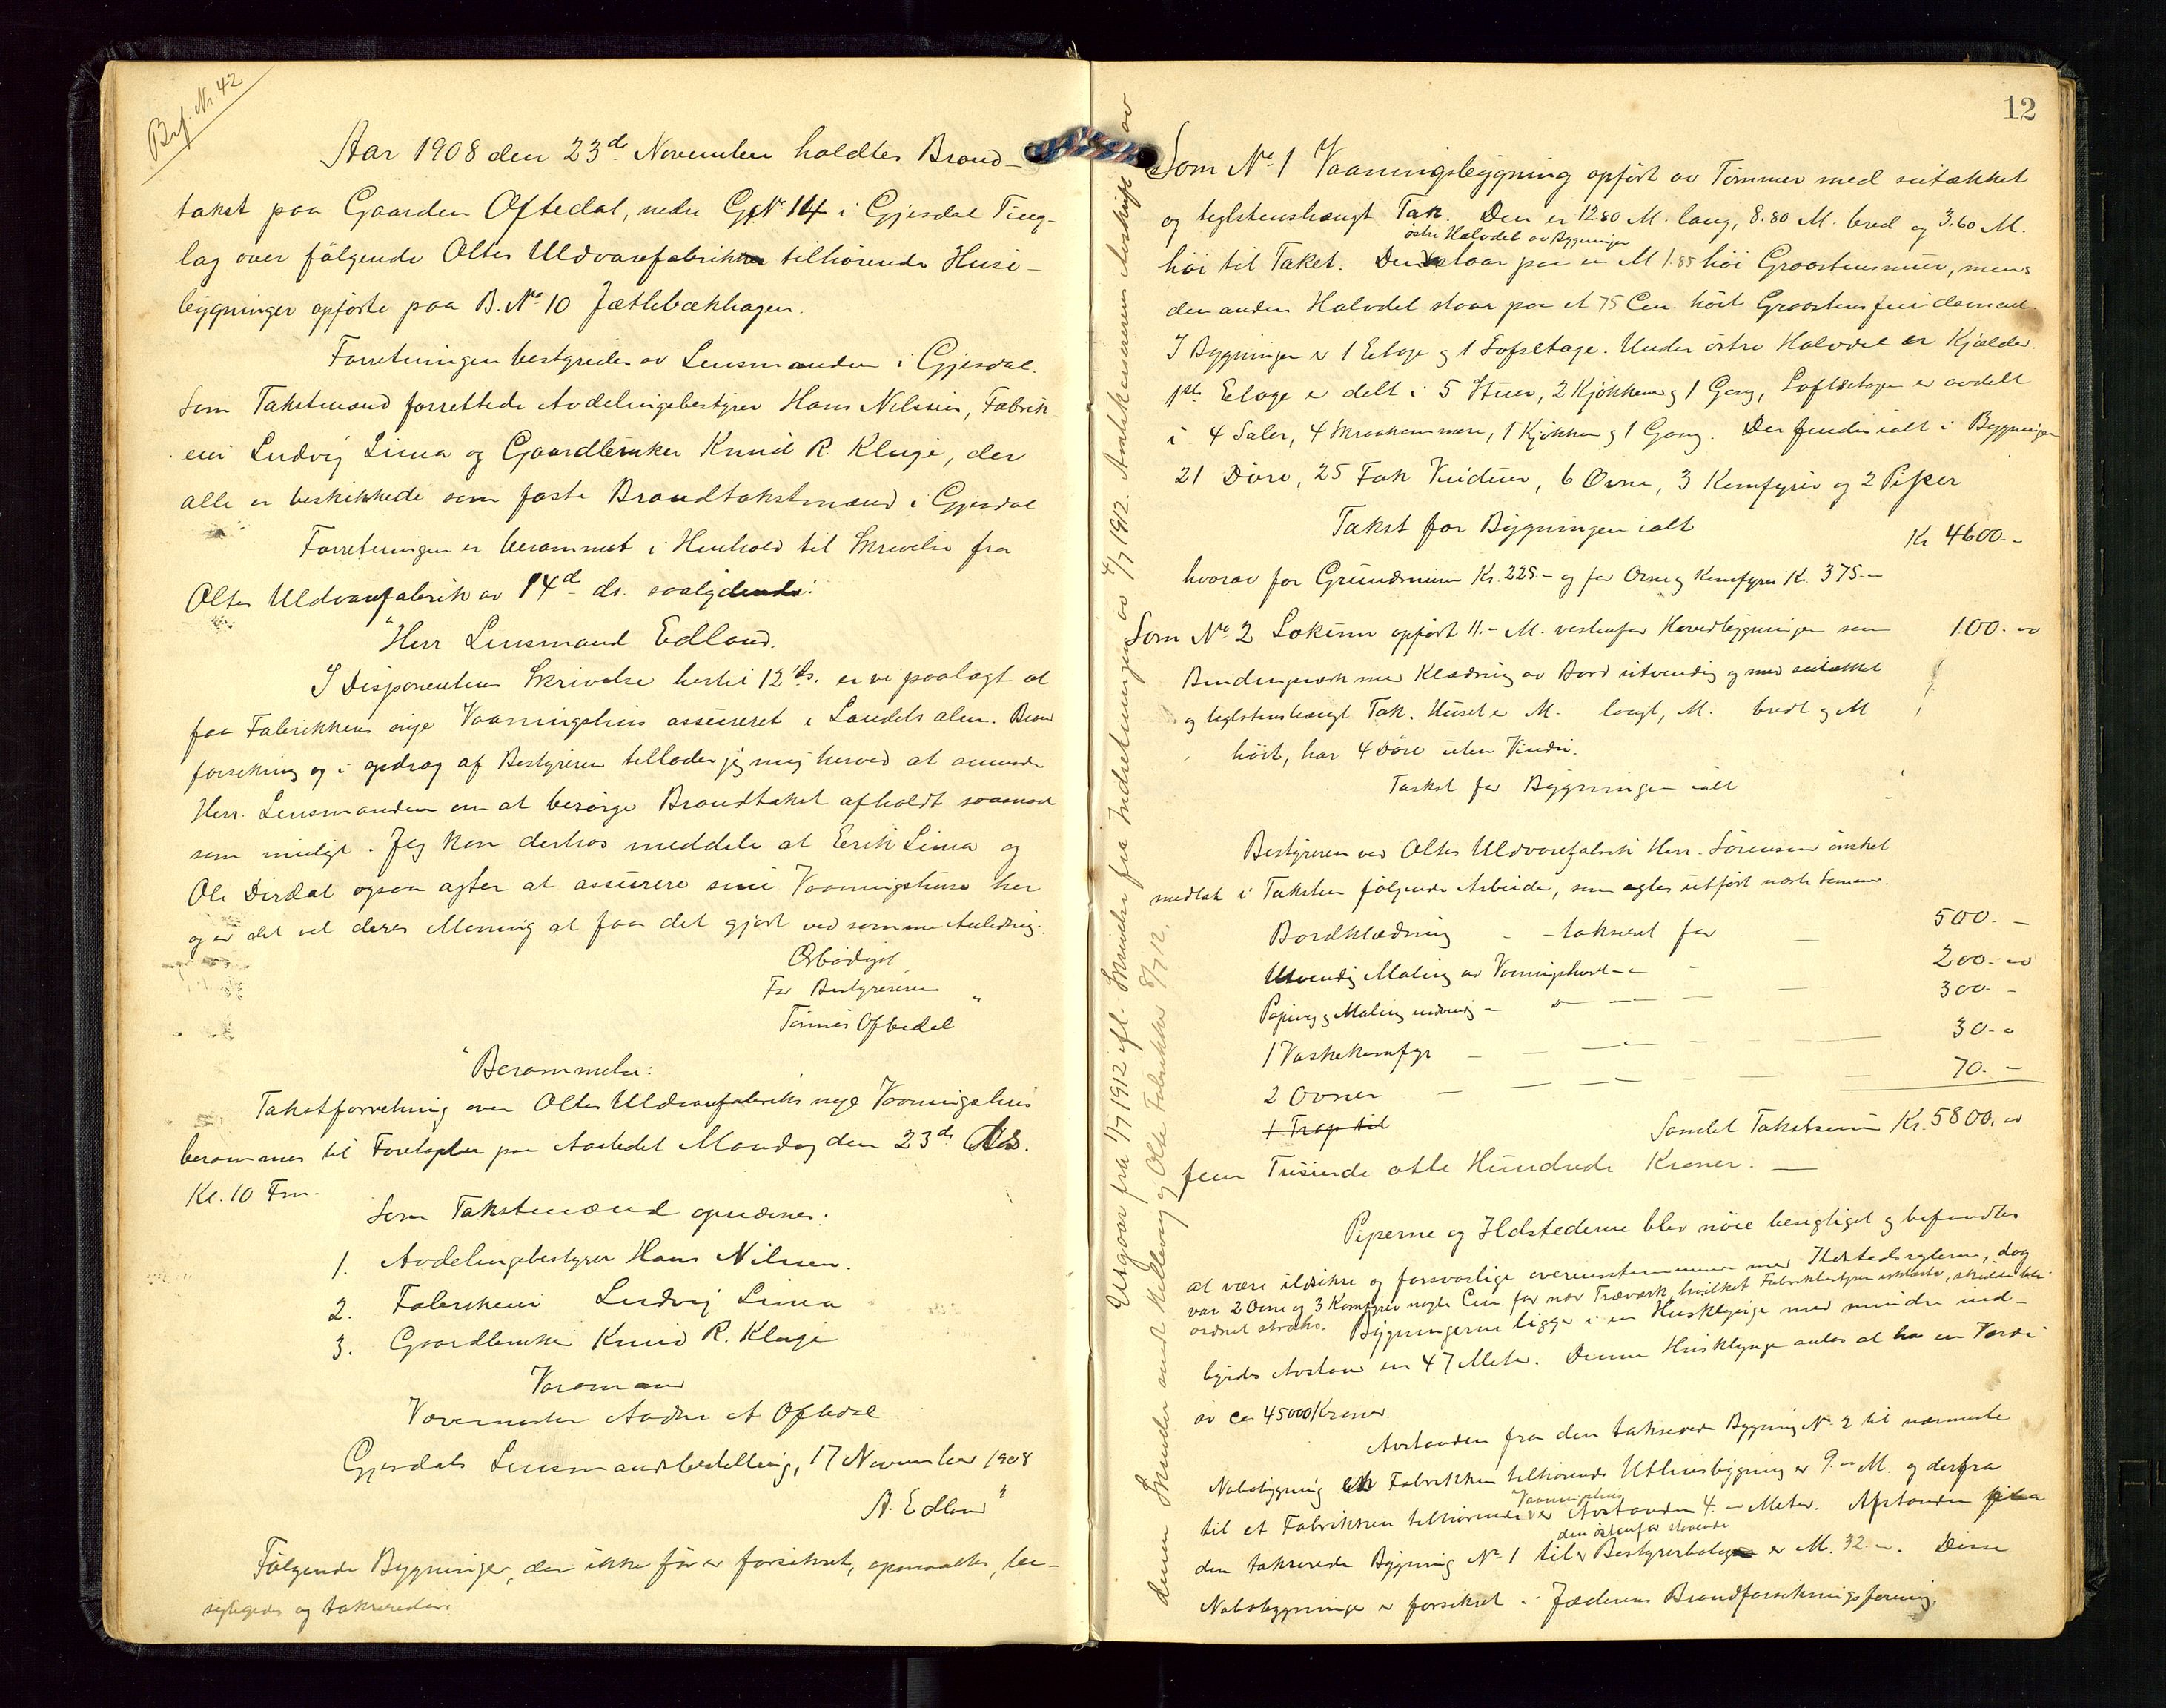 Brf. Nr. 42
Aar 1908 den 23de November holdtes Brand-
takst paa Gaarden Oftedal, nedre G.Nr 14 i Gjesdal Ting-
lag over følgende Oltes Uldvarefabrik tilhørende Huse-
bygninger opførte paa B. No 10 Jætlebækhagen.
Forretningen bestyredes av Lensmanden i Gjesdal.
Som Takstmænd forrettede Avdelingsbestyrer Hans Nilssen, Fabrik-
eier Ludvig Lima og Gaardbruker Knud R. Kluge, der
alle er beskikkede som faste Brandtakstmænd i Gjesdal
Forretningen er berammet i Henhold til Skrivelse fra
Oltes Uldvarefabrik av 14d ds. saalydende:
"Herr Lensmand Edland.
I Disponentens Skrivelse hertil 12 ds. er vi paalagt at
faa Fabrikkens nye Vaaningshus assureret i Landets alm. Brand
forsikring og i opdrag af Bestyreren tillader jeg mig herved at anmode
Herr. Lensmanden om at besørge Brandtakst afholdt saasnart
som muligt. Jeg kan derhos meddele at Erik Lima og
Ole Dirdal ogsaa agter at assurere sine Vaaningshuse her
og er det vel deres Mening at faa det gjort ved samme Anledning.
Ærbødigst
For Bestyreren
Tønnes Oftedal "
"Berammelse:
Takstforretning over Oltes Uldvarefabriks nye Vaaningshus
berammes til Foretagelse paa Aastedet Mandag den 23de ds.
Kl. 10 Fm.
Som Takstmænd opnævnes:
1. Avdelingsbestyrer Hans Nilssen.
2. Fabrikeier Ludvig Lima
3. Gaardbruker Knud R. Kluge
Varamand
Vævemester Andr A Oftedal
Gjesdals Lensmandsbestilling, 17 November 1908
A. Edland "
Følgende Bygninger, der ikke før er forsikret, opmaaltes, be-
sigtigedes og takseredes:
12
Som No 1 Vaaningsbygning opført av Tømmer med suitækket
og teglstenshængt Tak. Den er 12.80 M. lang, 8.80 M. bred og 3.60 M.
østre Halvdel av Bygningen
høi til Taket. Den staar paa en M 1.85 høi Graastensmur, mens
den anden Halvdel staar paa et 75 Cm. høit Graastensfundament.
I Bygningen er 1 Etage og 1 Loftsetage. Under østre Halvdel er Kjælder.
1ste Etage er delt i 5 Stuer, 2 Kjøkken og 1 Gang, Loftsetagen er avdelt
i 4 Saler, 4 Skraakammere, 1 Kjøkken og 1 Gang. Der findes ialt i Bygningen
21 Døre, 25 Fak Vinduer, 6 Ovne, 3 Komfyrer og 2 Piper
Takst for Bygningen ialt
Kr 4600.-
hvorav for Grundmuren Kr. 225.- og for Ovne og Komfyrer Kr. 375.-
Som No 2 Lokum opført 11.- M. vestenfor Hovedbygningen som 100.-
Bindingsverk med Klædning av Bord utvendig og med suitækket
og teglstenshængt Tak. Huset er M. langt, M. bredt og M
høit, har 4 Døre uten Vindu.
Takst for Bygningen ialt
Bestyreren ved Oltes Uldvarefabrik Herr. Sørensen ønsket
medtat i Taksten følgende Arbeide, som agtes utført næste Sommer.
Bordklædning - - takseret for 500.-
Utvendig Maling av Vaaningshuset - 200.-
Papering og Maling indvendig - 300.-
1 Vaskekomfyr - 30.-
2 Ovner - 70.-
1 Trap til
Samlet Takstsum Kr. 5800.
fem Tusinde otte Hundrede Kroner. -
Piperne og Ildstederne blev nøie besigtiget og befandtes
at være ildsikre og forsvarlige overensstemmende med Ildstedsreglerne, dog
var 2 Ovne og 3 Komfyrer nogle Cm. for nær Træværk, hvilket Fabrikbestyreren erklærte, skulde bli
ordnet straks. Bygningerne ligger i en Husklynge med mindre ind-
byrdes Avstand en 47 Meter. Denne Husklynge antas at ha en Værdi
av ca 45000 Kroner.
Avstanden fra den takserede Bygning No 2 til nærmeste
Nabobygning en Fabrikken tilhørende Uthusbygning er 9.- M. og derfra
Vaaningshus
til et Fabrikken tilhørende er Avstanden 4.- Meter. Afstanden fra
den østenfor staaende
den takserede Bygning No 1 til Bestyrerbolig er M. 32.-. Disse
Nabobygninger er forsikret i Jæderens Brandforsikringsforening.
Utgaar fra 1/7 1912 ifl. Skrivelse fra Indretningen av 4/7 1912. Avskrift av
denne Skrivelse sendt Fabrikker 8/7 12.